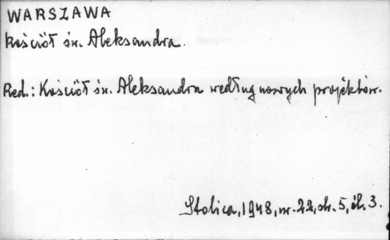 WARSZAWA
Kościół św. Aleksandra.
Red.: Kościół św. Aleksandra według nowych projektów.
Stolica, 1948, nr. 22, str. 5, il. 3.